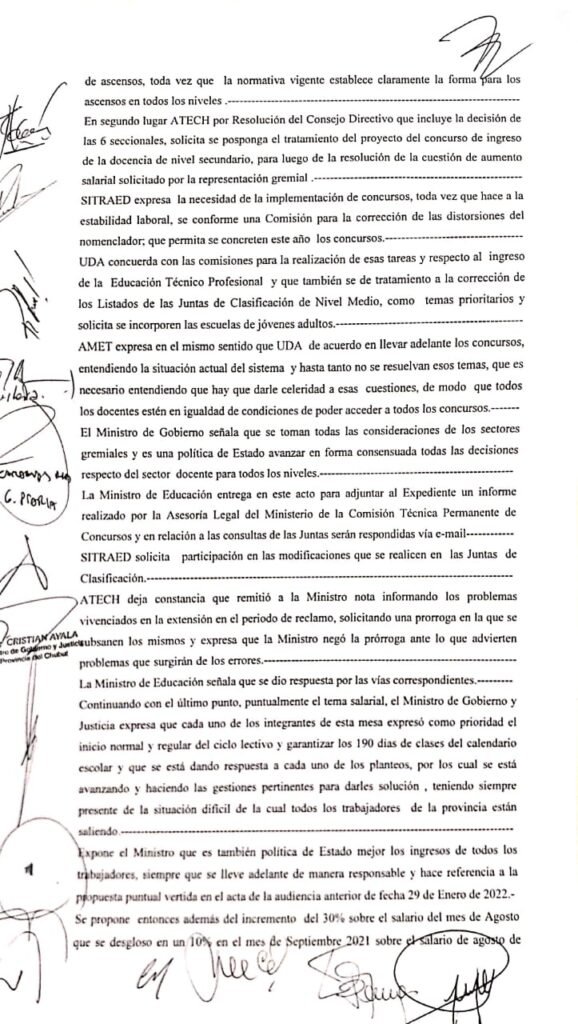 de ascensos, toda vez que la normativa vigente establece claramente la forma para los
ascensos en todos los niveles .----------------------------------------------------------
En segundo lugar ATECH por Resolución del Consejo Directivo que incluye la decisión de
las 6 seccionales, solicita se posponga el tratamiento del proyecto del concurso de ingreso
de la docencia de nivel secundario, para luego de la resolución de la cuestión de aumento
salarial solicitado por la representación gremial .------------------------------------------
SITRAED expresa la necesidad de la implementación de concursos, toda vez que hace a la
estabilidad laboral, se conforme una Comisión para la corrección de las distorsiones del
nomenclador; que permita se concreten este año los concursos.---------------------------
UDA concuerda con las comisiones para la realización de esas tareas y respecto al ingreso
de la Educación Técnico Profesional y que también se de tratamiento a la corrección de
los Listados de las Juntas de Clasificación de Nivel Medio, como temas prioritarios y
solicita se incorporen las escuelas de jóvenes adultos.--------------------------------------
AMET expresa en el mismo sentido que UDA de acuerdo en llevar adelante los concursos,
entendiendo la situación actual del sistema y hasta tanto no se resuelvan esos temas, que es
necesario entendiendo que hay que darle celeridad a esas cuestiones, de modo que todos
los docentes estén en igualdad de condiciones de poder acceder a todos los concursos.-------
El Ministro de Gobierno señala que se toman todas las consideraciones de los sectores
gremiales y es una política de Estado avanzar en forma consensuada todas las decisiones
respecto del sector docente para todos los niveles.------------------------------------------
La Ministro de Educación entrega en este acto para adjuntar al Expediente un informe
realizado por la Asesoría Legal del Ministerio de la Comisión Técnica Permanente de
Concursos y en relación a las consultas de las Juntas serán respondidas vía e-mail------------
SITRAED solicita participación en las modificaciones que se realicen en las Juntas de
Clasificación.------------------------------------------------------------------------------
ATECH deja constancia que remitió a la Ministro nota informando los problemas
vivenciados en la extensión en el periodo de reclamo, solicitando una prorroga en la que se
subsanen los mismos y expresa que la Ministro negó la prórroga ante lo que advierten
problemas que surgirán de los errores.-----------------------------------------------------
La Ministro de Educación señala que se dio respuesta por las vías correspondientes.---------
Continuando con el último punto, puntualmente el tema salarial, el Ministro de Gobierno y
Justicia expresa que cada uno de los integrantes de esta mesa expresó como prioridad el
inicio normal y regular del ciclo lectivo y garantizar los 190 días de clases del calendario
escolar y que se está dando respuesta a cada uno de los planteos, por los cual se está
avanzando y haciendo las gestiones pertinentes para darles solución , teniendo siempre
presente de la situación difícil de la cual todos los trabajadores de la provincia están
saliendo.-----------------------------------------------------------------------------------
Expone el Ministro que es también política de Estado mejor los ingresos de todos los
trabajadores, siempre que se lleve adelante de manera responsable y hace referencia a la
propuesta puntual vertida en el acta de la audiencia anterior de fecha 29 de Enero de 2022.-
Se propone entonces además del incremento del 30% sobre el salario del mes de Agosto
que se desgloso en un 10% en el mes de Septiembre 2021 sobre el salario de agosto de
G. PTORIA
CRISTIAN AYALA
tro de Gobierno y Justicia
Provincia del Chubut